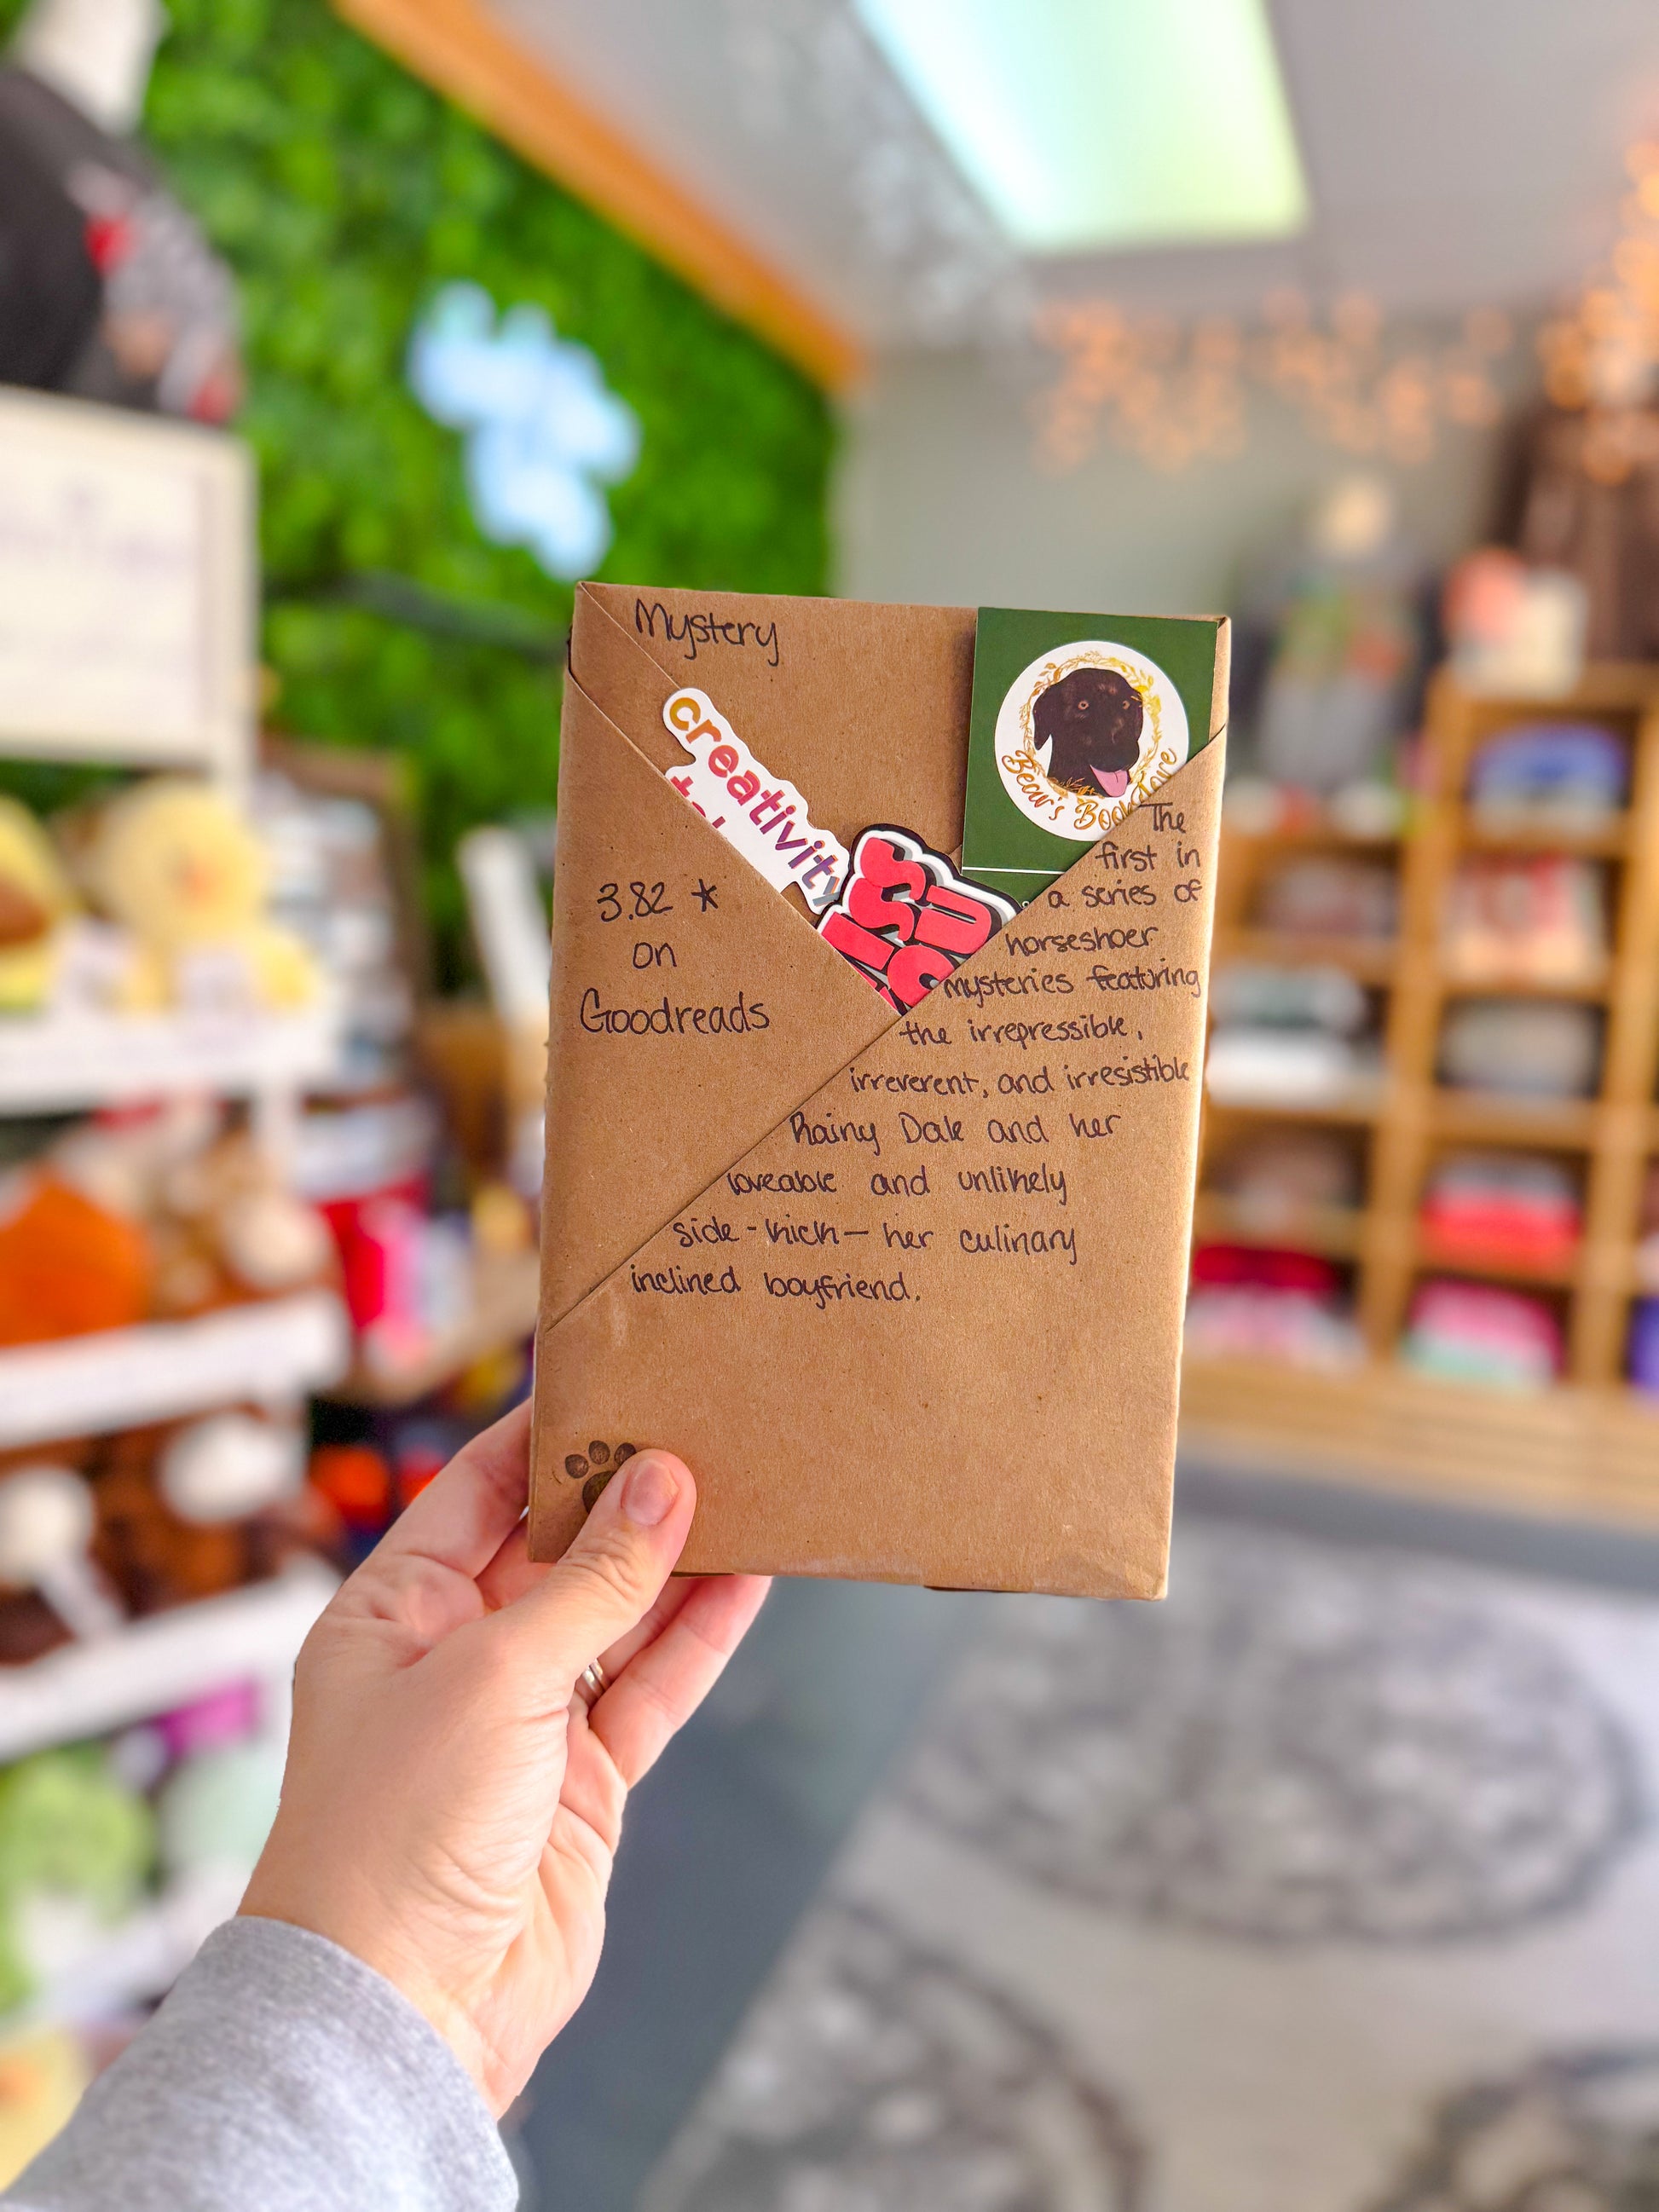 Mystery
creativity
Bear's Bookstore
3.82 *
on
Goodreads
The
first in
a series of
horseshoer
mysteries featuring
the irrepressible,
irreverent, and irresistible
Rainy Dale and her
loveable and unlikely
side-kick— her culinary
inclined boyfriend.